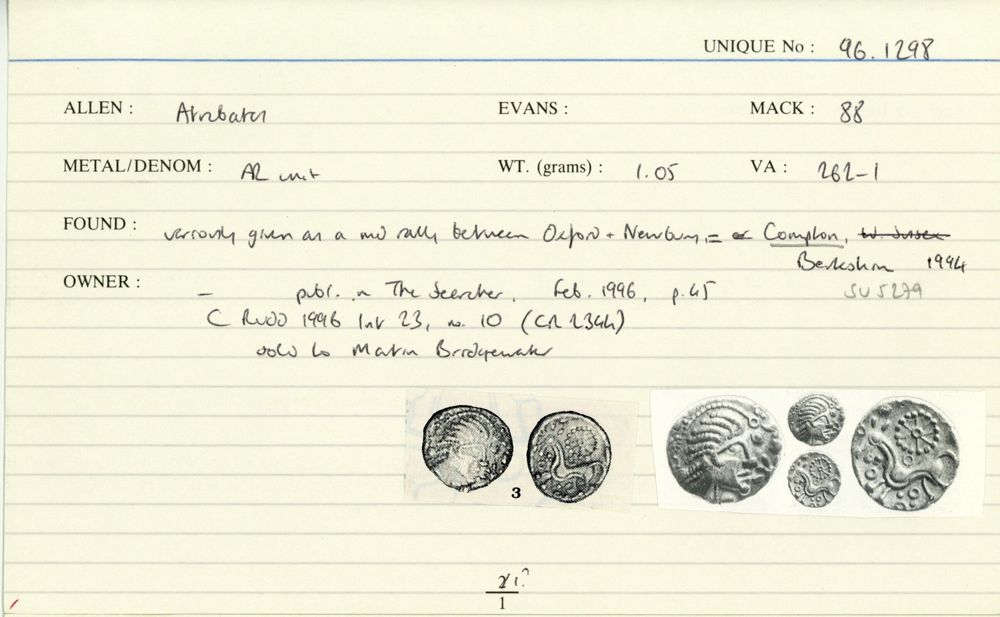 UNIQUE No : 96.1298
ALLEN : Atrebates EVANS : MACK : 88
METAL/DENOM : AR unit WT. (grams) : 1.05 VA : 262-1
FOUND : variously given as a md rally between Oxford + Newbury, = or Compton, W. Sussex
Berkshire 1994
OWNER : – publ. in The Searcher, Feb. 1996, p. 45 SU 5279
C Rudd 1996 list 23, no. 10 (CR 234h)
sold to Martin Bridgewater
3
1?
1